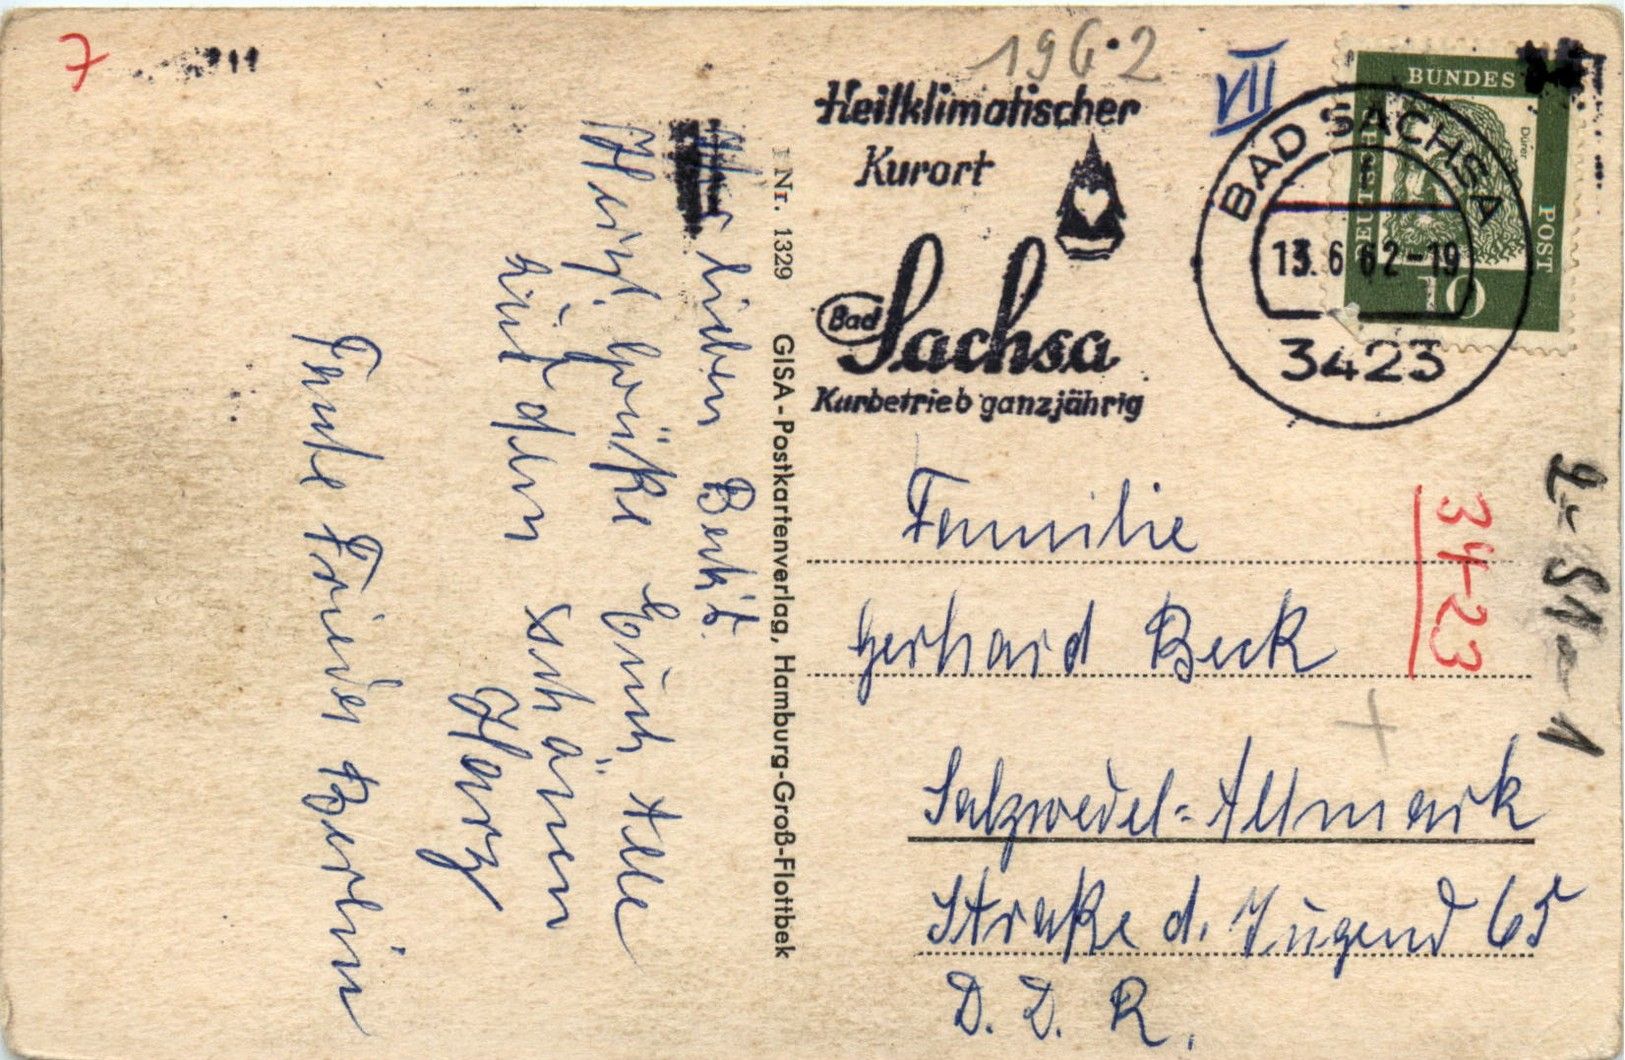 7
1962
VII
Heilklimatischer
Kurort
Bad Sachsa
Kurbetrieb ganzjährig
BAD SACHSA
13.6.62-19
3423
DEUTSCHE
BUNDES
POST
Dürer
10
lieben Beck's.
Herzl. Grüße Euch Alle
aus dem schönen
Harz
Tante Frieda Berlin
Nr. 1329 GISA-Postkartenverlag, Hamburg-Groß-Flottbek
Familie
Gerhard Beck
34-23
Salzwedel-Altmark
Straße d. Jugend 65
D. D. R.